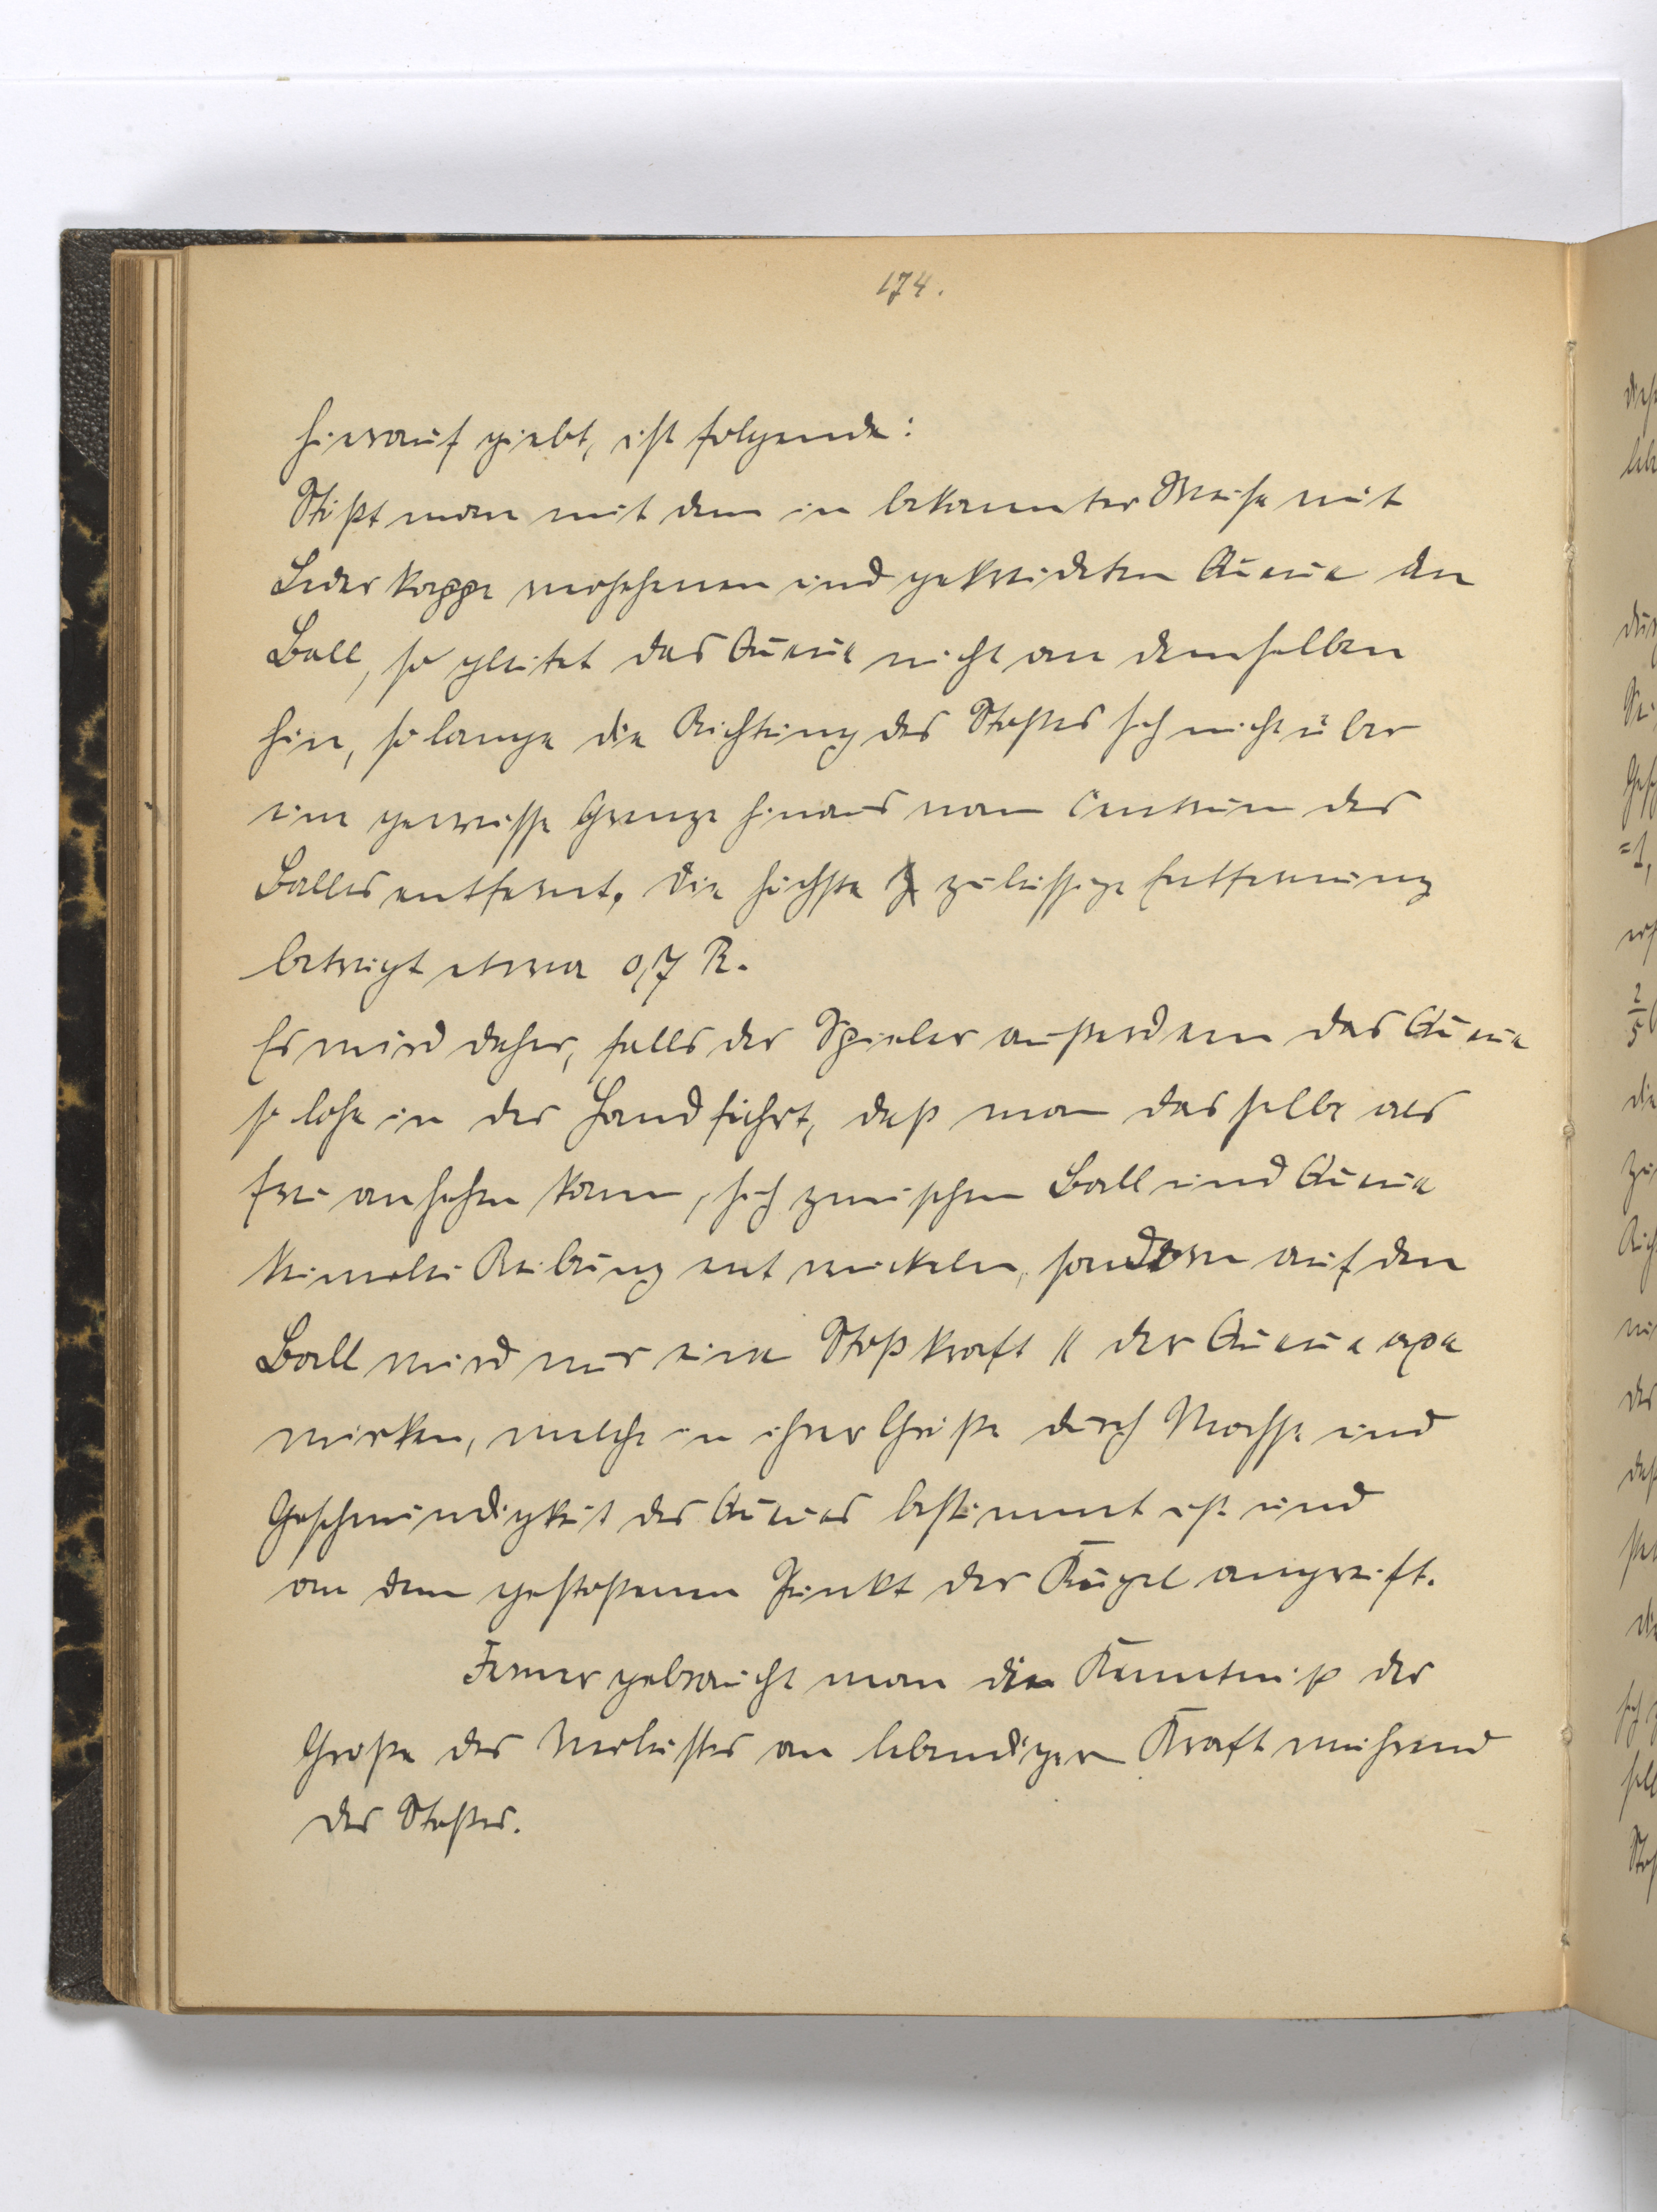 174.
hierauf giebt, ist folgende:
Stößt man mit dem in bekannter Weise mit
Lederkappe versehenen und gekreideten Queue den
Ball, so gleitet das Queue nicht an demselben
hin, so lange die Richtung des Stoßes sich nicht über
eine gewisse Grenze hinaus vom Centrum des
Balles entfernt. Die höchste zulässige Entfernung
beträgt etwa 0,7 R.
Es wird daher, falls der Spieler außerdem das Queue
so lose in der Hand führt, daß man dasselbe als
frei ansehen kann, sich zwischen Ball und Queue
keinerlei Reibung entwickeln, sondern auf den
Ball wird nur eine Stoßkraft || der Queueaxe
wirken, welche in ihrer Größe durch Masse und
Geschwindigkeit des Queues bestimmt ist und
an dem gestoßenen Punkt der Kugel angreift.
Ferner gebraucht man die Kenntniß der
Große des Verlustes an lebendiger Kraft während
des Stoßes.
=1,
2
5